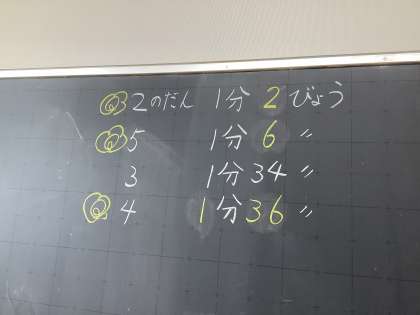 2のだん 1分 2びょう
5 1分 6 〃
3 1分 34 〃
4 1分 36 〃